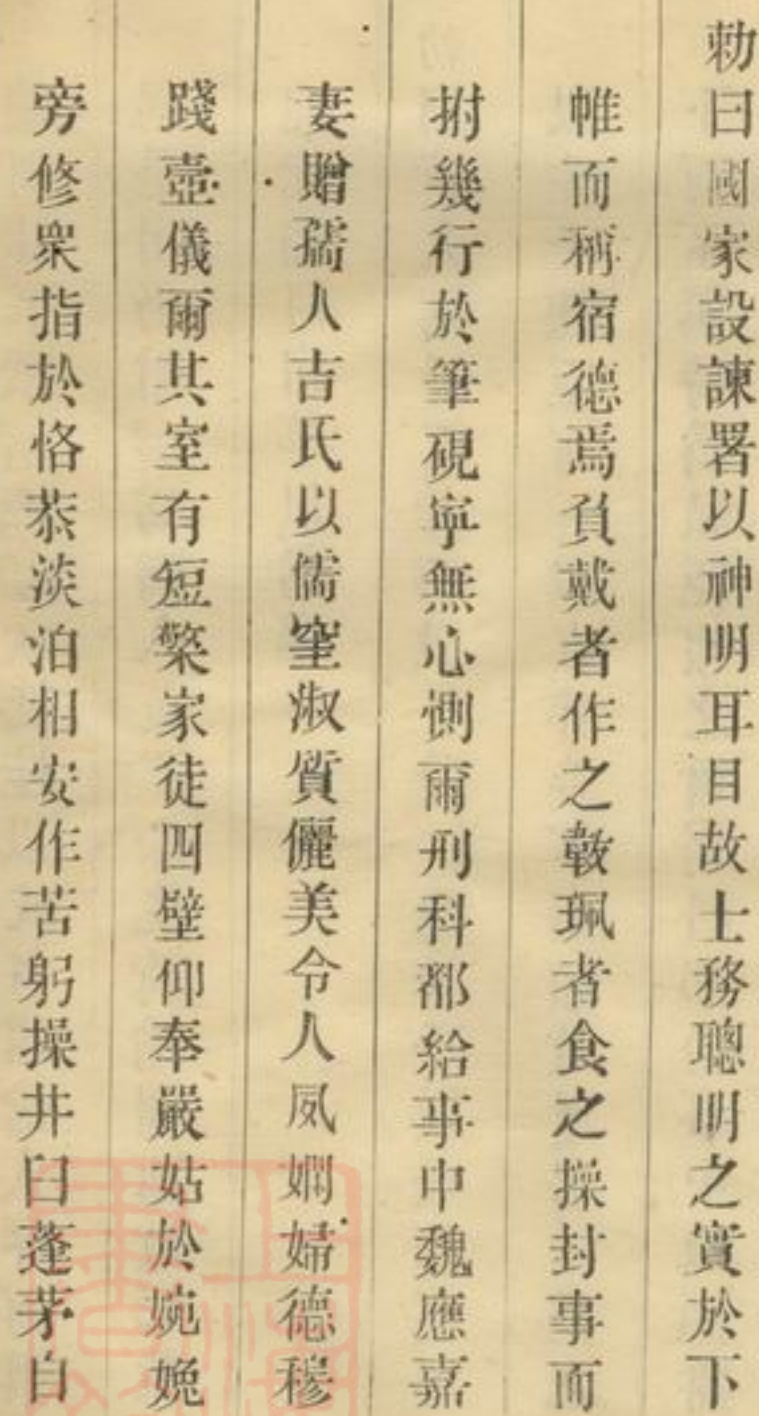 勅曰國家設諫署以神明耳目故士務聰明之實於下
帷而稱宿德焉負戴者作之敹珮者食之操封事而
拊幾行於筆硯寧無心惻爾刑科都給事中魏應嘉
妻贈孺人吉氏以儒室淑質儷美令人夙嫻婦德穆
踐壼儀爾其室有短檠家徒四壁仰奉嚴姑於婉娩
旁修衆指於恪恭淡泊相安作苦躬操井臼蓬茅自